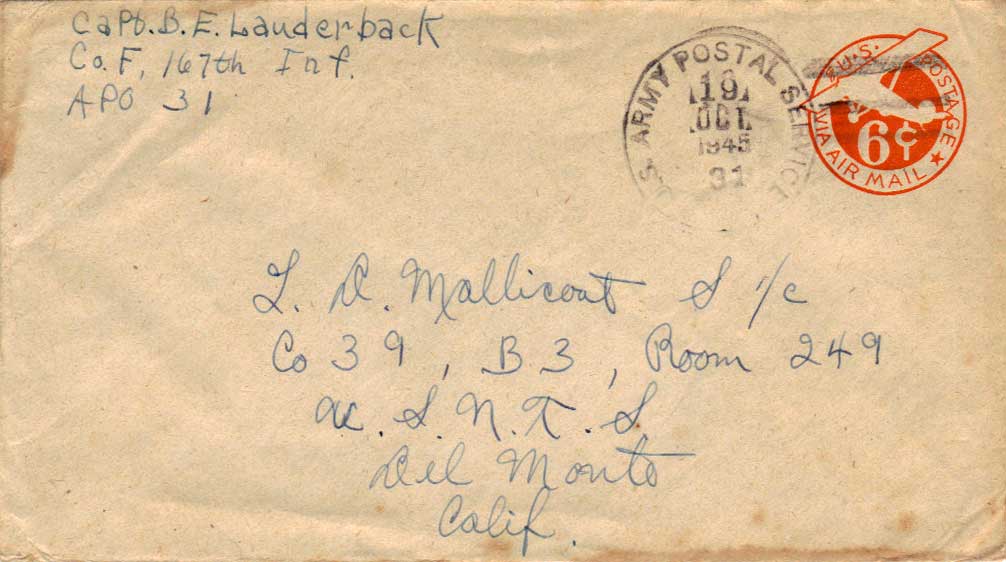 Capt. B. E. Lauderback
Co. F, 167th Inf.
APO 31
U.S. ARMY POSTAL SERVICE
19
OCT
1945
31
U.S. POSTAGE
6¢
VIA AIR MAIL
L. D. Mallicoat S 1/c
Co 39, B3, Room 249
U. S. N. T. S
Del Monte
Calif.